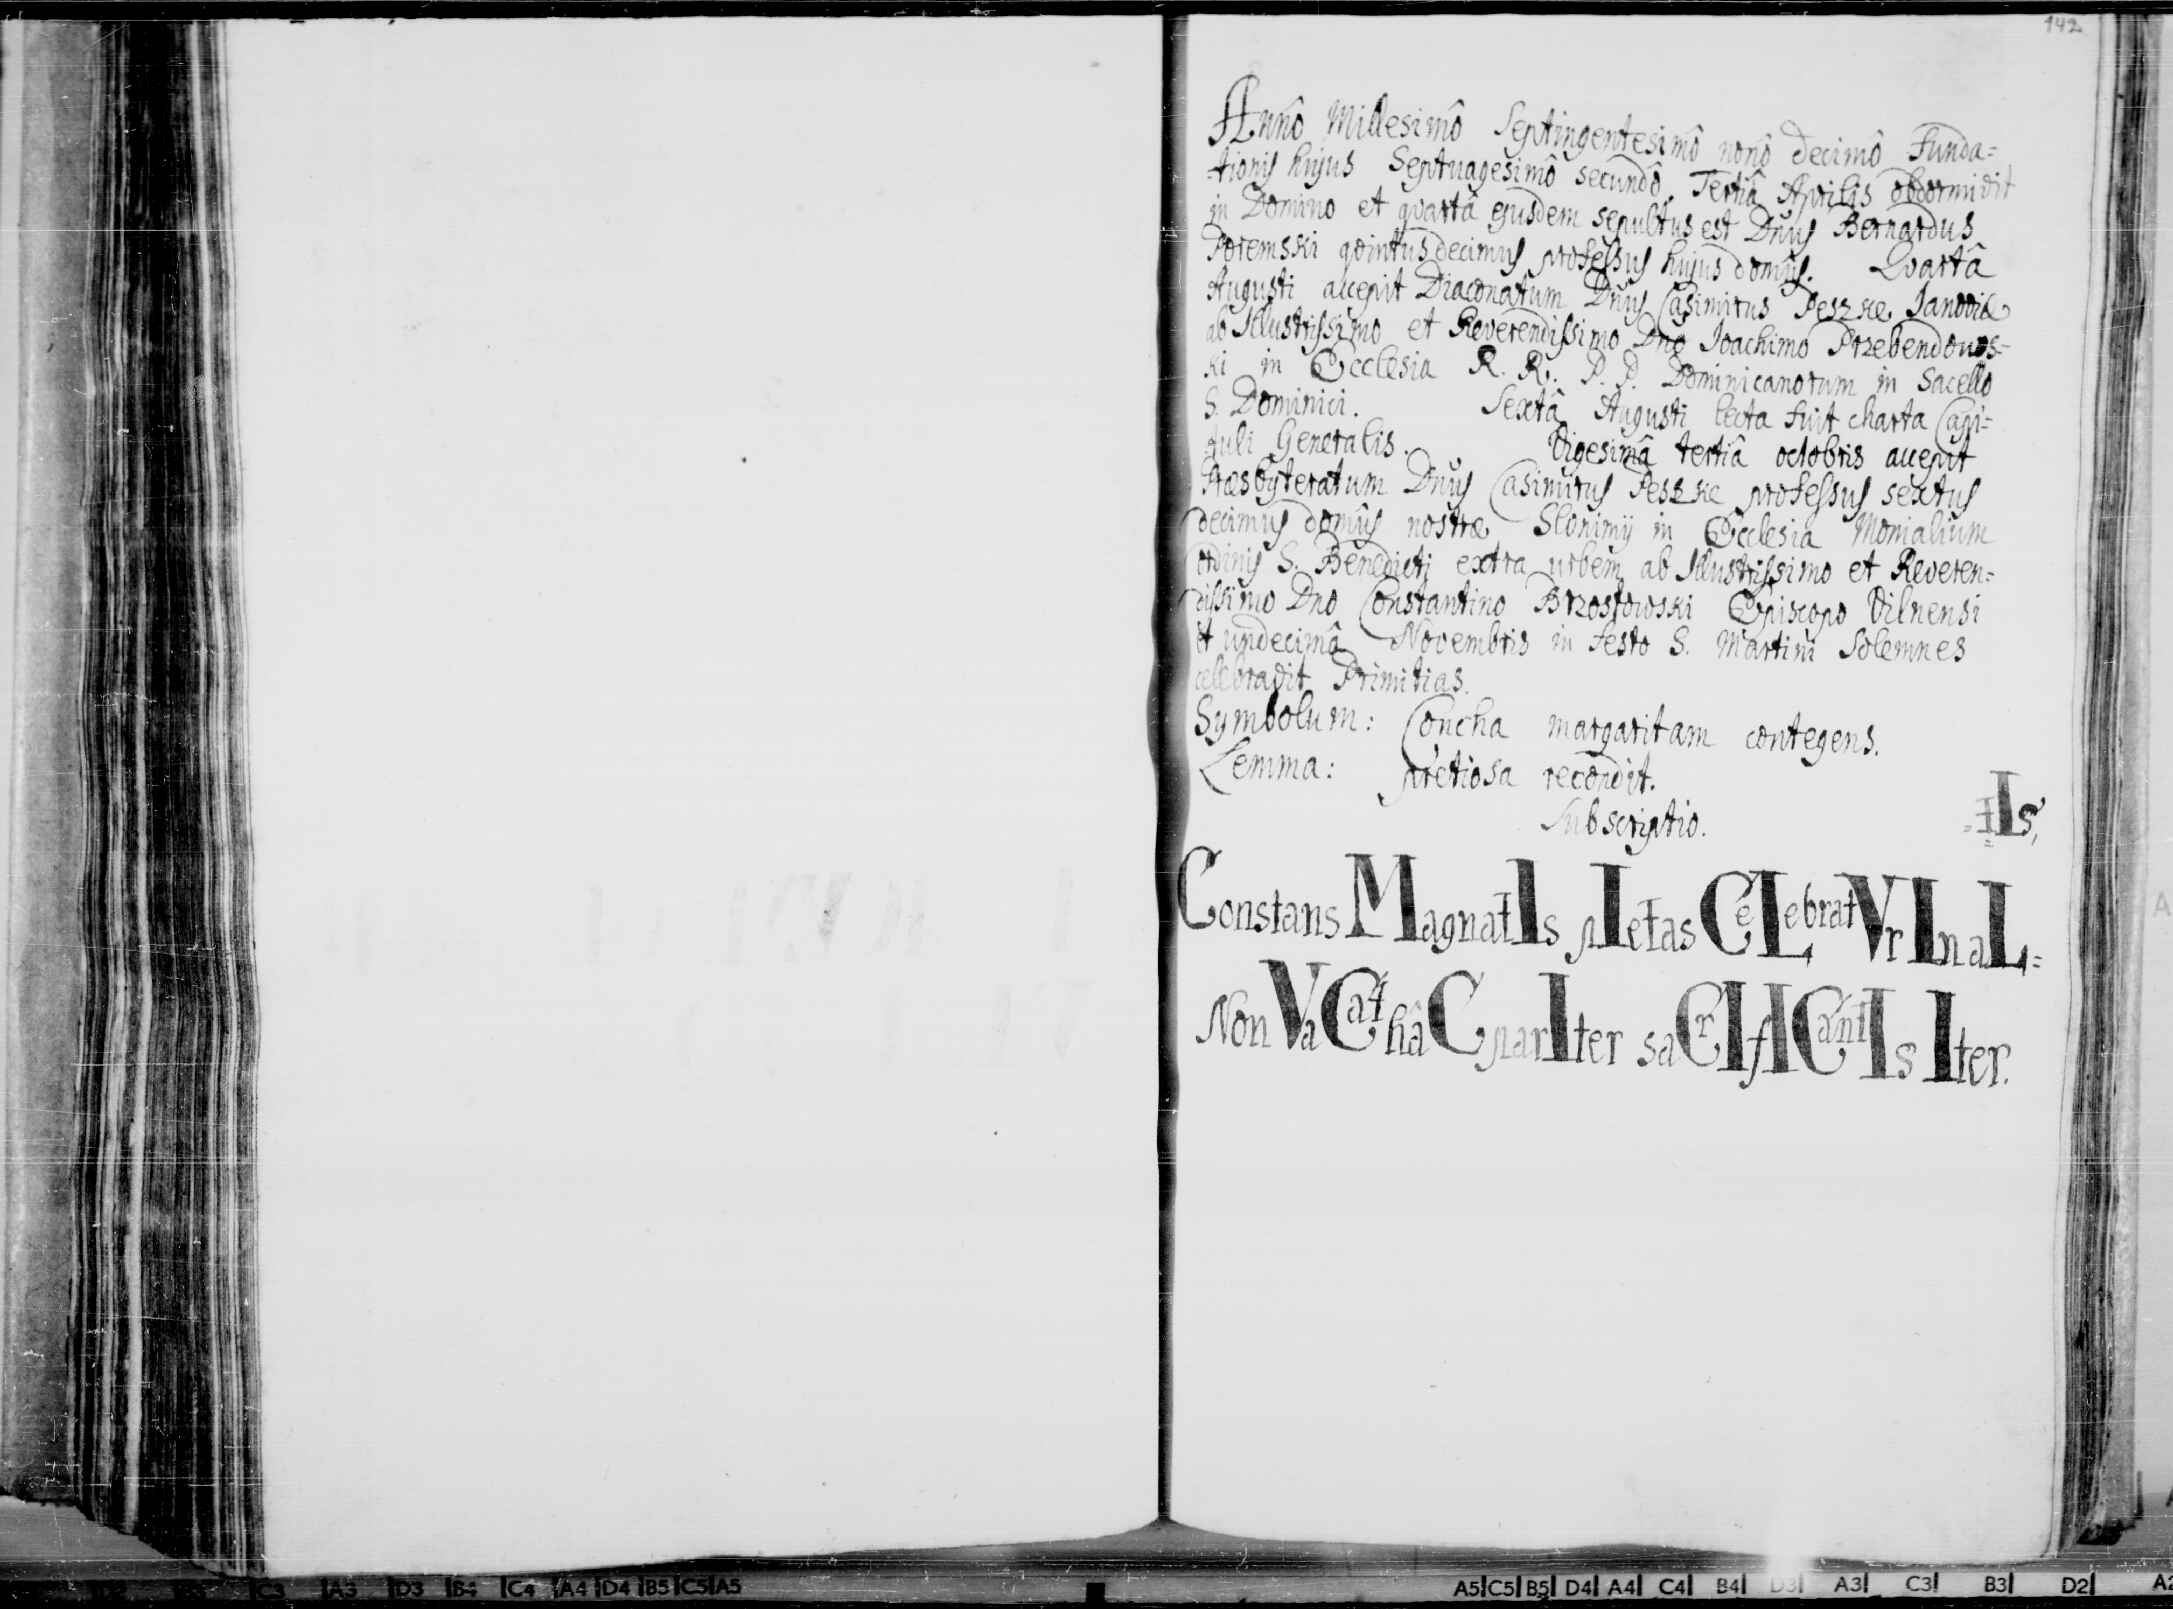 142
Annô Millesimô Septingentesimô nonô decimô Funda=
tionis hujus Septuagesimô secundô. Tertiâ Aprilis obdormivit
in Domino et quartâ ejusdem sepultus est Dnus Bernardus
Poremski qvintus decimus professus hujus domûs. Qvartâ
Augusti accepit Diaconatum Dnus Casimirus Peszke Janoviæ
ab Illustrissimo et Reverendissimo Dno Joachimo Przebendows=
ki in Ecclesia R. R. P. P. Dominicanorum in Sacello
S. Dominici. Sextâ Augusti lecta fuit charta Capi=
tuli Generalis. Vigesimâ tertiâ octobris accepit
Præsbyteratum Dnus Casimirus Peszke professus sextus
decimus domûs nostræ Slonimij in Ecclesia Monialium
ordinis S. Benedicti extra urbem ab Illustrissimo et Reveren=
dissimo Dno Constantino Brzostowski Episcopo Vilnensi
et undecimâ Novembris in festo S. Martini Solemnes
celebravit Primitias.
Symbolum: Concha margaritam contegens.
Lemma: pretiosa recondit.
Subscriptio.
Constans MagnatIs pIetas CeLebratVr In aL=
=IIs,
Non VaCat hâC parIter saCrIfICantIs Iter.
A5 C5 B5 D4 A4 C4 B4 D3 A3 C3 B3 D2 A2
C3 A3 D3 B4 C4 A4 D4 B5 C5 A5